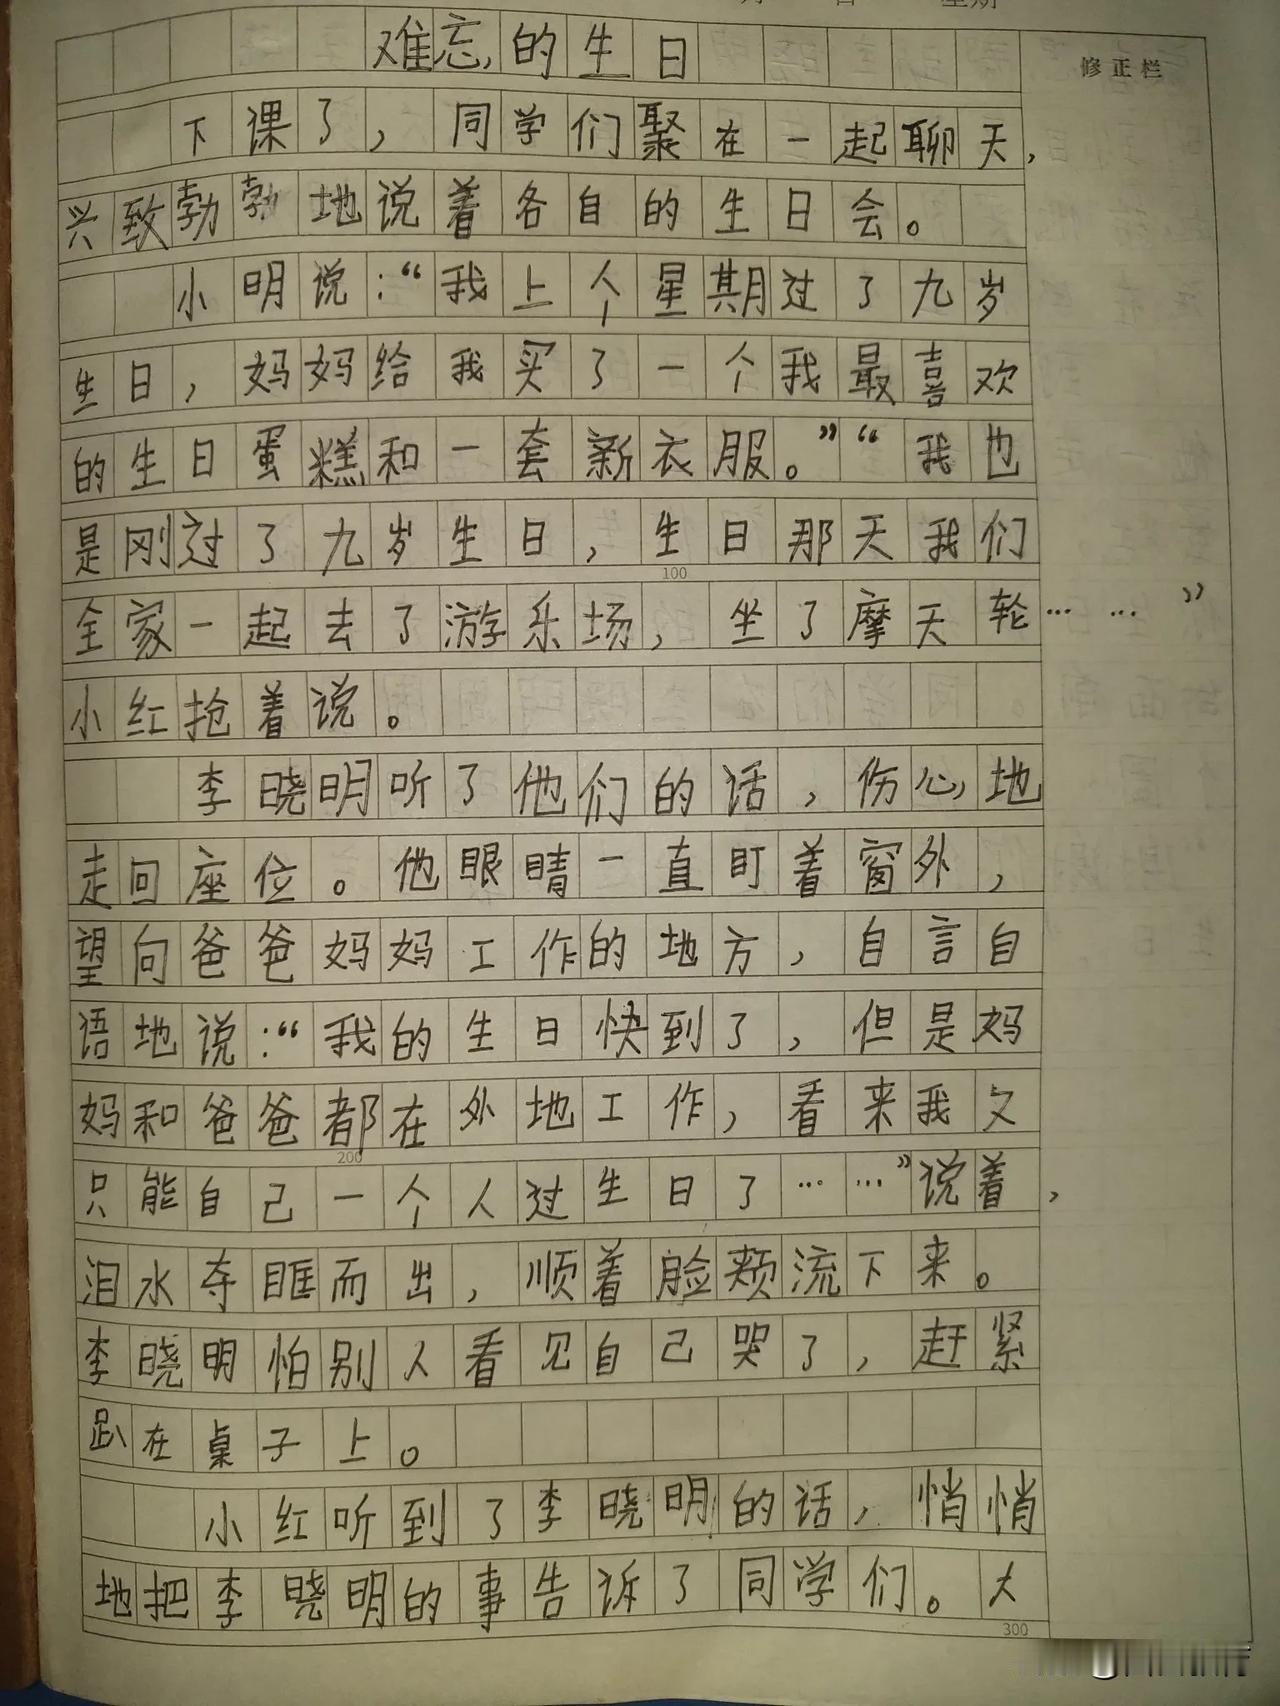 星期
修正栏
难忘的生日
下课了，同学们聚在一起聊天，
兴致勃勃地说着各自的生日会。
小明说：“我上个星期过了九岁
生日，妈妈给我买了一个我最喜欢
的生日蛋糕和一套新衣服。”“我也
是刚过了九岁生日，生日那天我们
100
全家一起去了游乐场，坐了摩天轮……”
小红抢着说。
李晓明听了他们的话，伤心地
走回座位。他眼睛一直盯着窗外，
望向爸爸妈妈工作的地方，自言自
语地说：“我的生日快到了，但是妈
妈和爸爸都在外地工作，看来我又
200
只能自己一个人过生日了……”说着，
泪水夺眶而出，顺着脸颊流下来。
李晓明怕别人看见自己哭了，赶紧
趴在桌子上。
小红听到了李晓明的话，悄悄
地把李晓明的事告诉了同学们。大
300